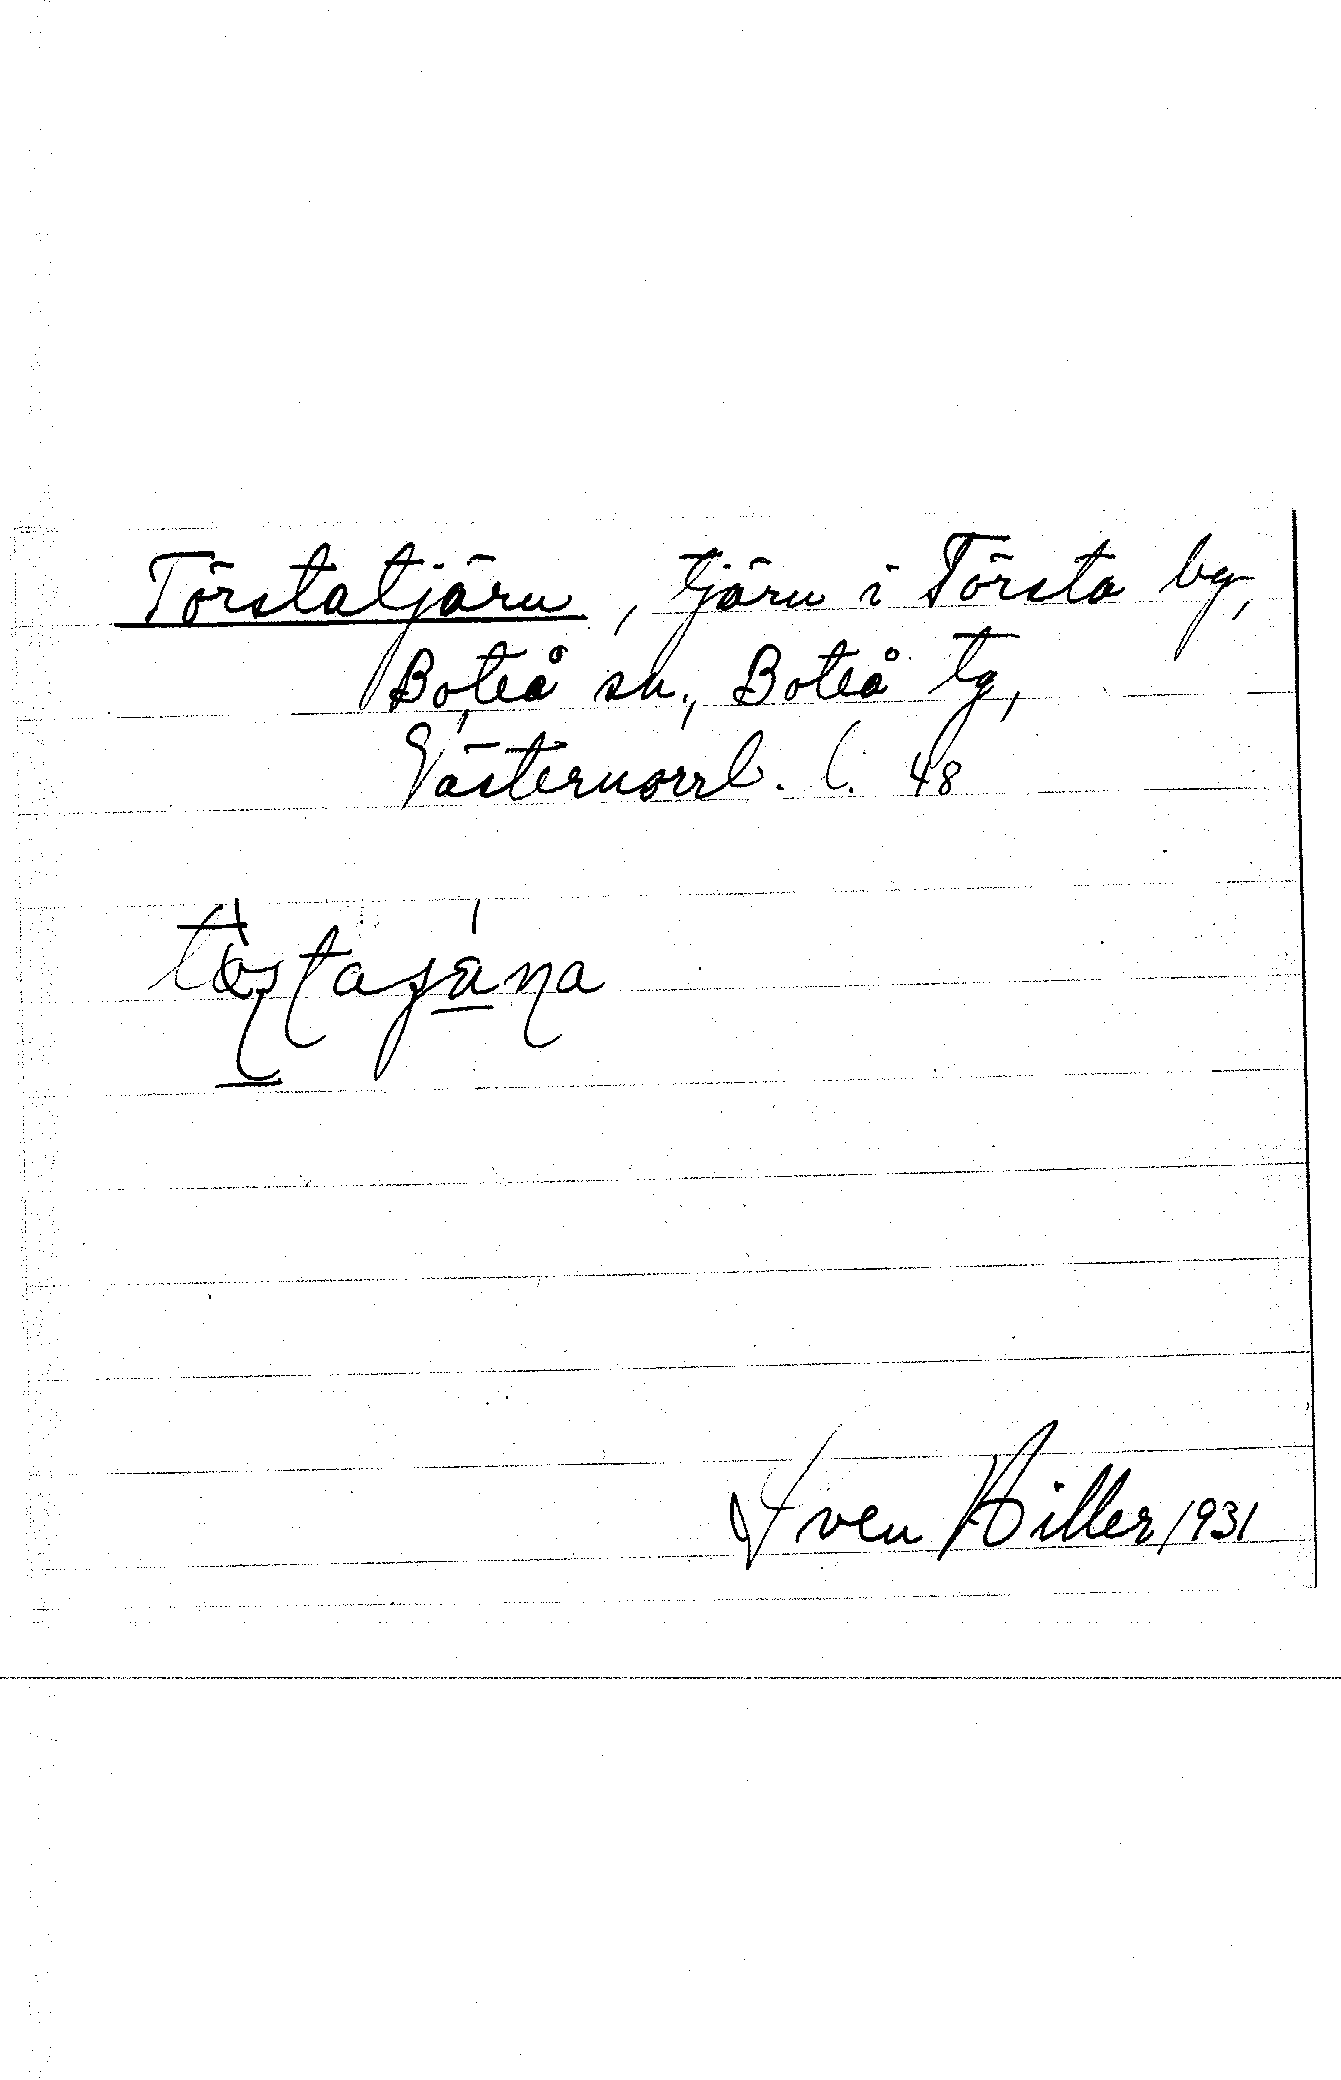 Törstatjärn, tjärn i Törsta by,
Boteå sn., Boteå tg,
Västernorrl. l. 48
Sven Hiller 1931